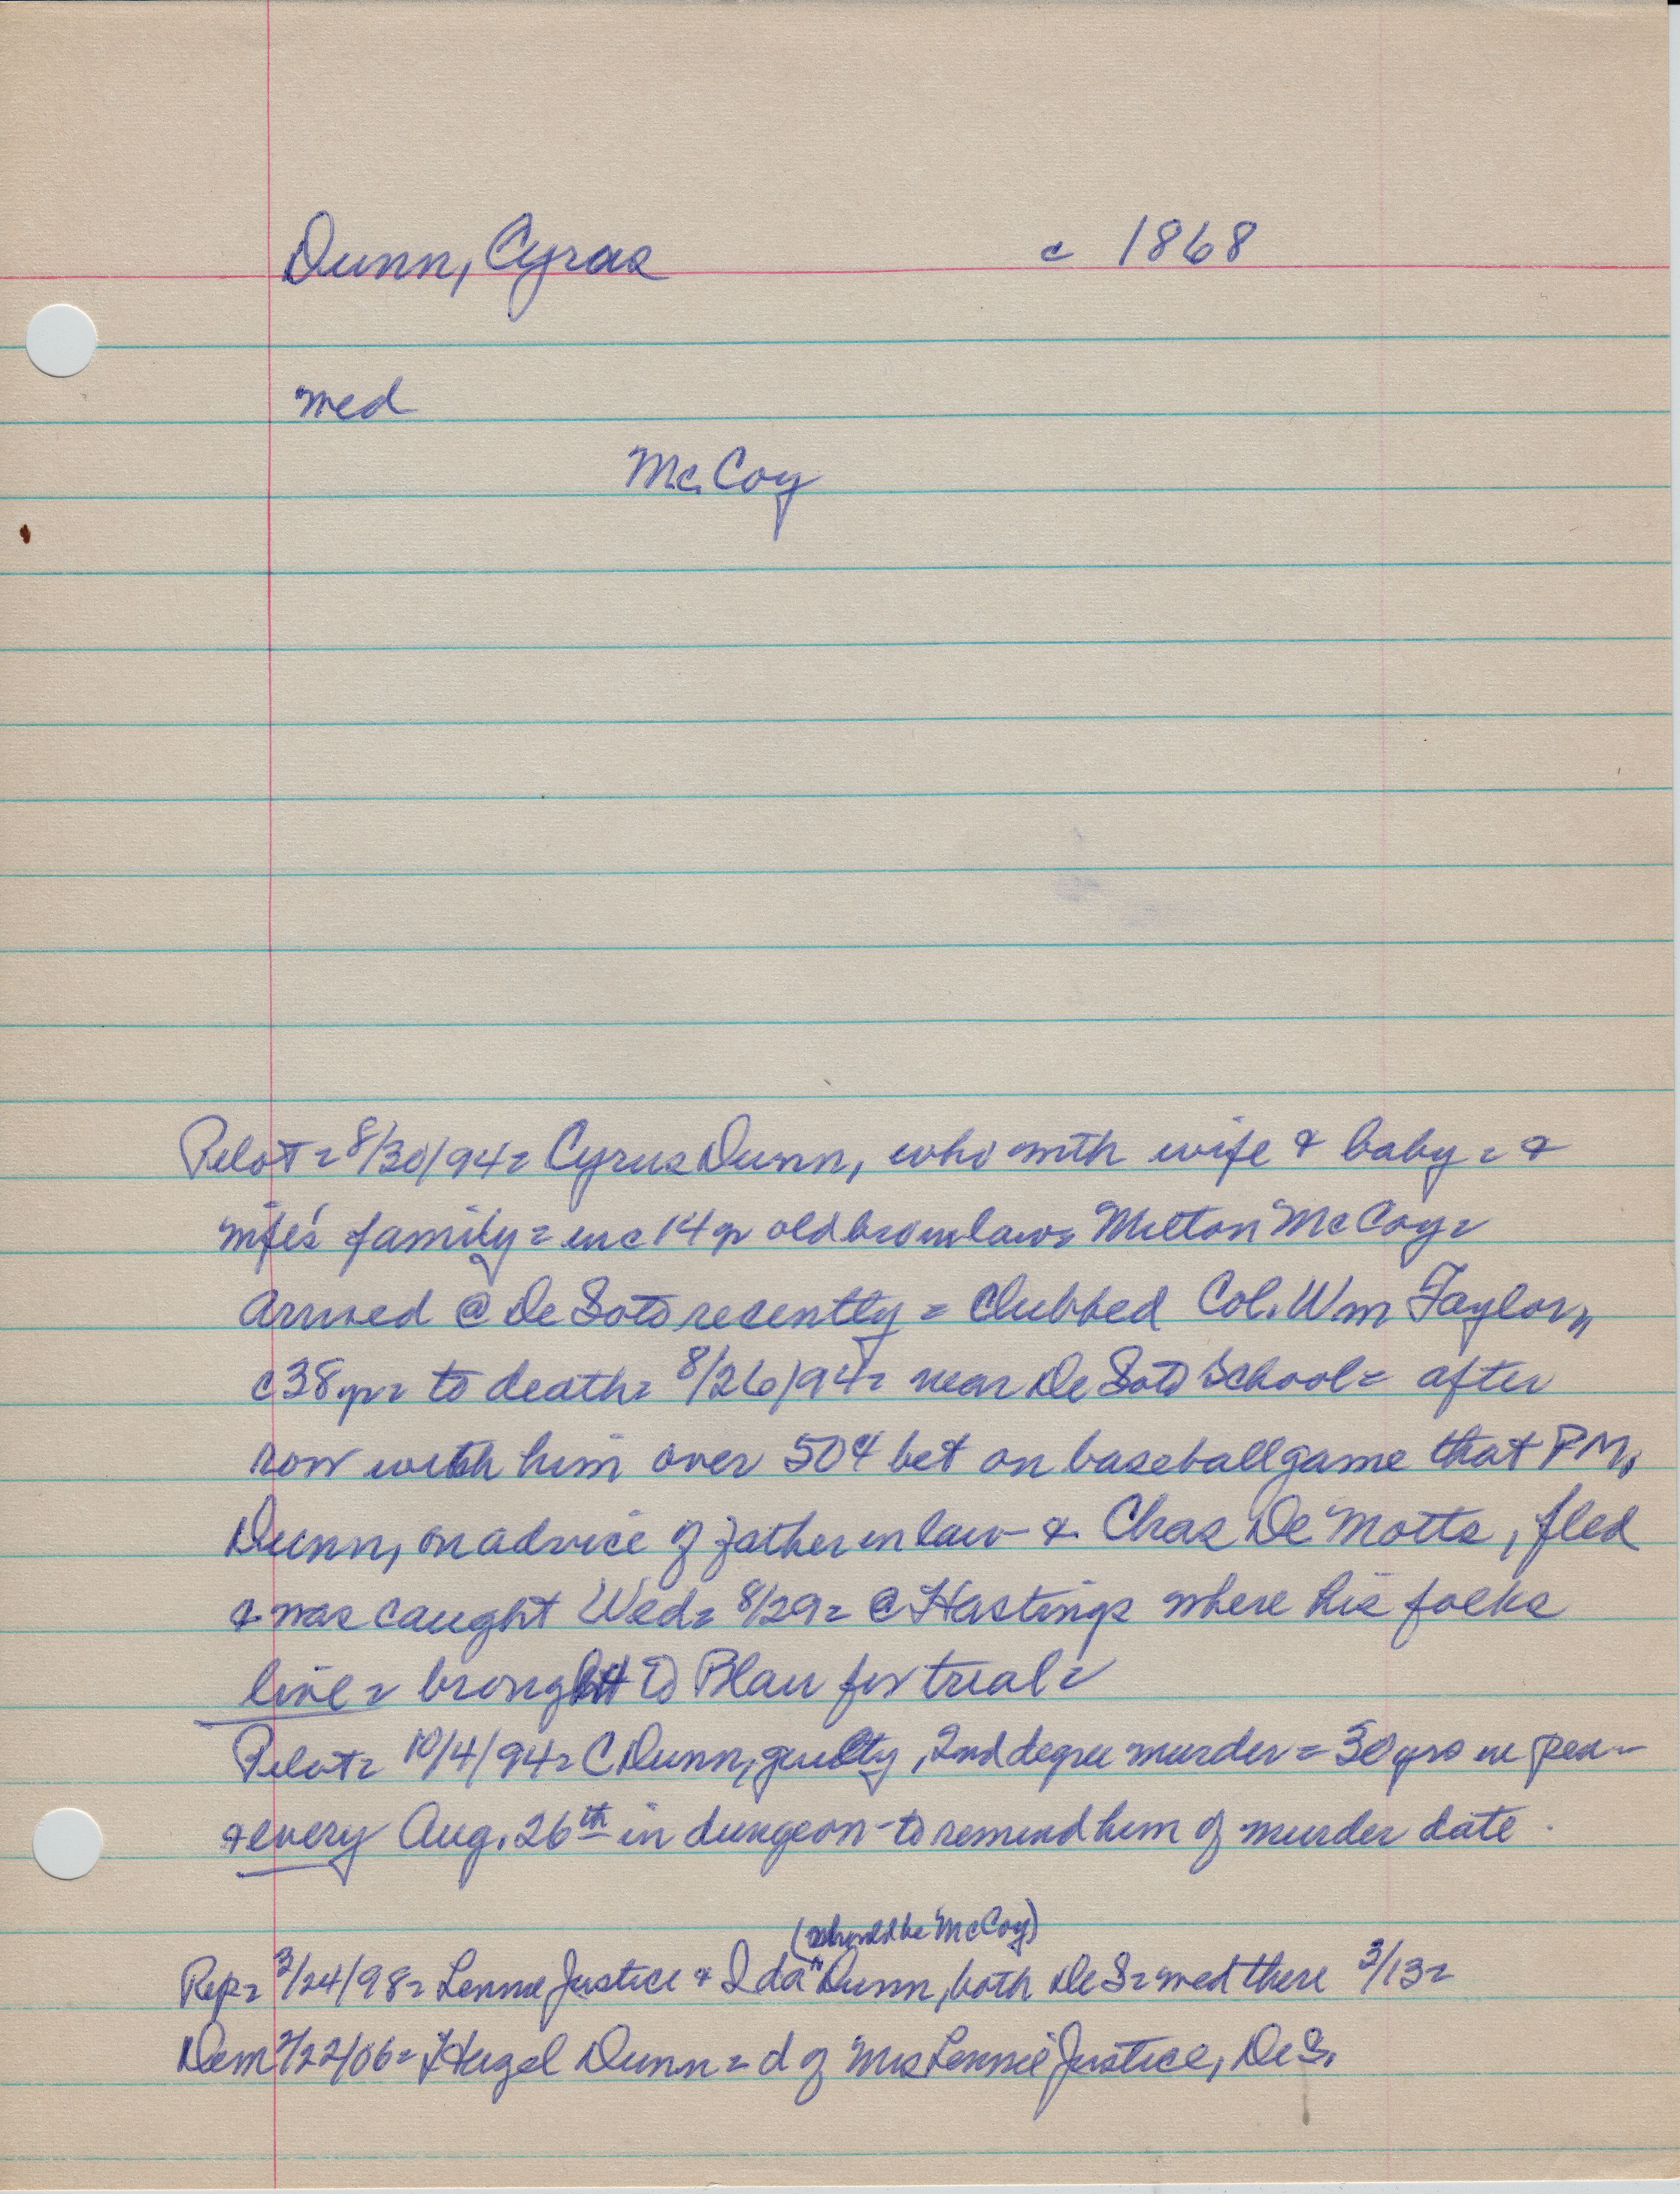 Dunn, Cyrus c 1868
med
McCoy
Pilot = 8/30/94 = Cyrus Dunn, who with wife & baby = &
wife's family = inc 14 yr old bro in law = Milton McCoy =
arrived @ De Soto recently = clubbed Col. Wm Taylor,
c 38 yr = to death = 8/26/94 = near De Soto School = after
row with him over 50¢ bet on baseball game that PM.
Dunn, on advice of father in law & Chas De Motts, fled
& was caught Wed = 8/29 = @ Hastings where his folks
live = brought to Blair for trial =
Pilot = 10/4/94 = C Dunn, guilty, 2nd degree murder = 30 yrs in pen -
& every Aug. 26th in dungeon - to remind him of murder date.
(should be McCoy)
Rep = 3/24/98 = Lennie Justice & Ida "Dunn, both De S = med there 3/13 =
Dem 2/22/06 = Hazel Dunn = d of Mrs Lennie Justice, De S.